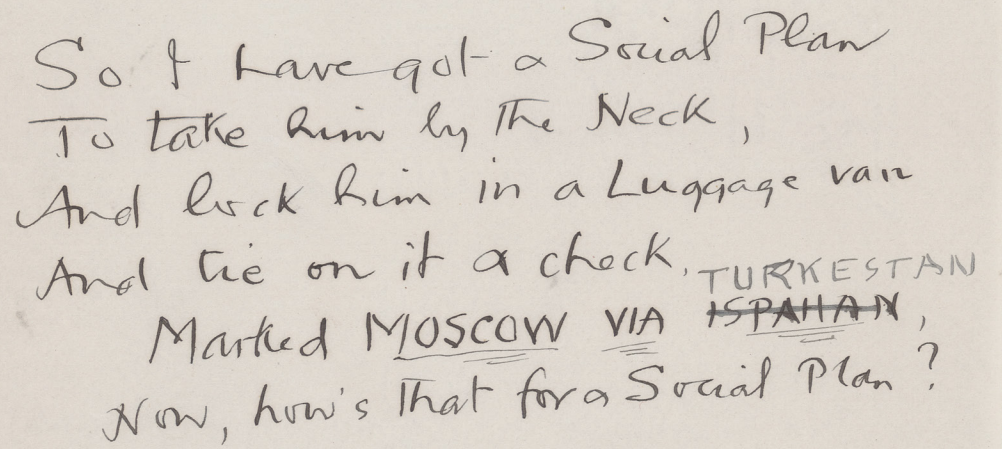 So I have got a Social Plan
To take him by the Neck,
And lock him in a Luggage van
And tie on it a check,
TURKESTAN
Marked MOSCOW VIA ISPAHAN,
Now, how's that for a Social Plan?